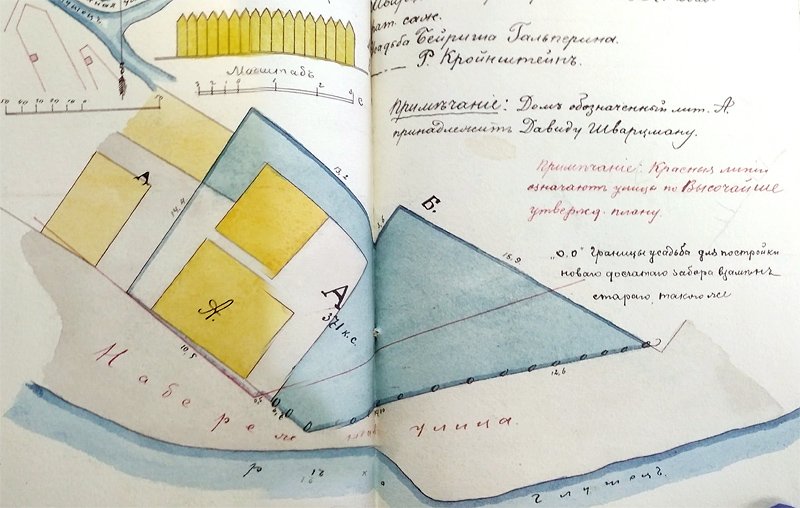 кат. саж.
усадьба Бейриша Гальперина.
Ф Кройнштейнъ.
Масштабъ
3 2 1 0 1 2 3 с
50 40 30 20 10 0
Примѣчаніе: Домъ обозначенный лит. А.
принадлежитъ Давиду Шварцману.
Примѣчаніе: Красныя линіи
означаютъ улицы по Высочайше
утвержд. плану.
„о.о" Границы усадьба для постройки
новаго досчатаго забора взамѣнъ
стараго, такого же
А
14,4
13,2
Б.
15,9
А.
А
371 к.с.
10,5
12,6
Набереж
улица.
р
Глутецъ.